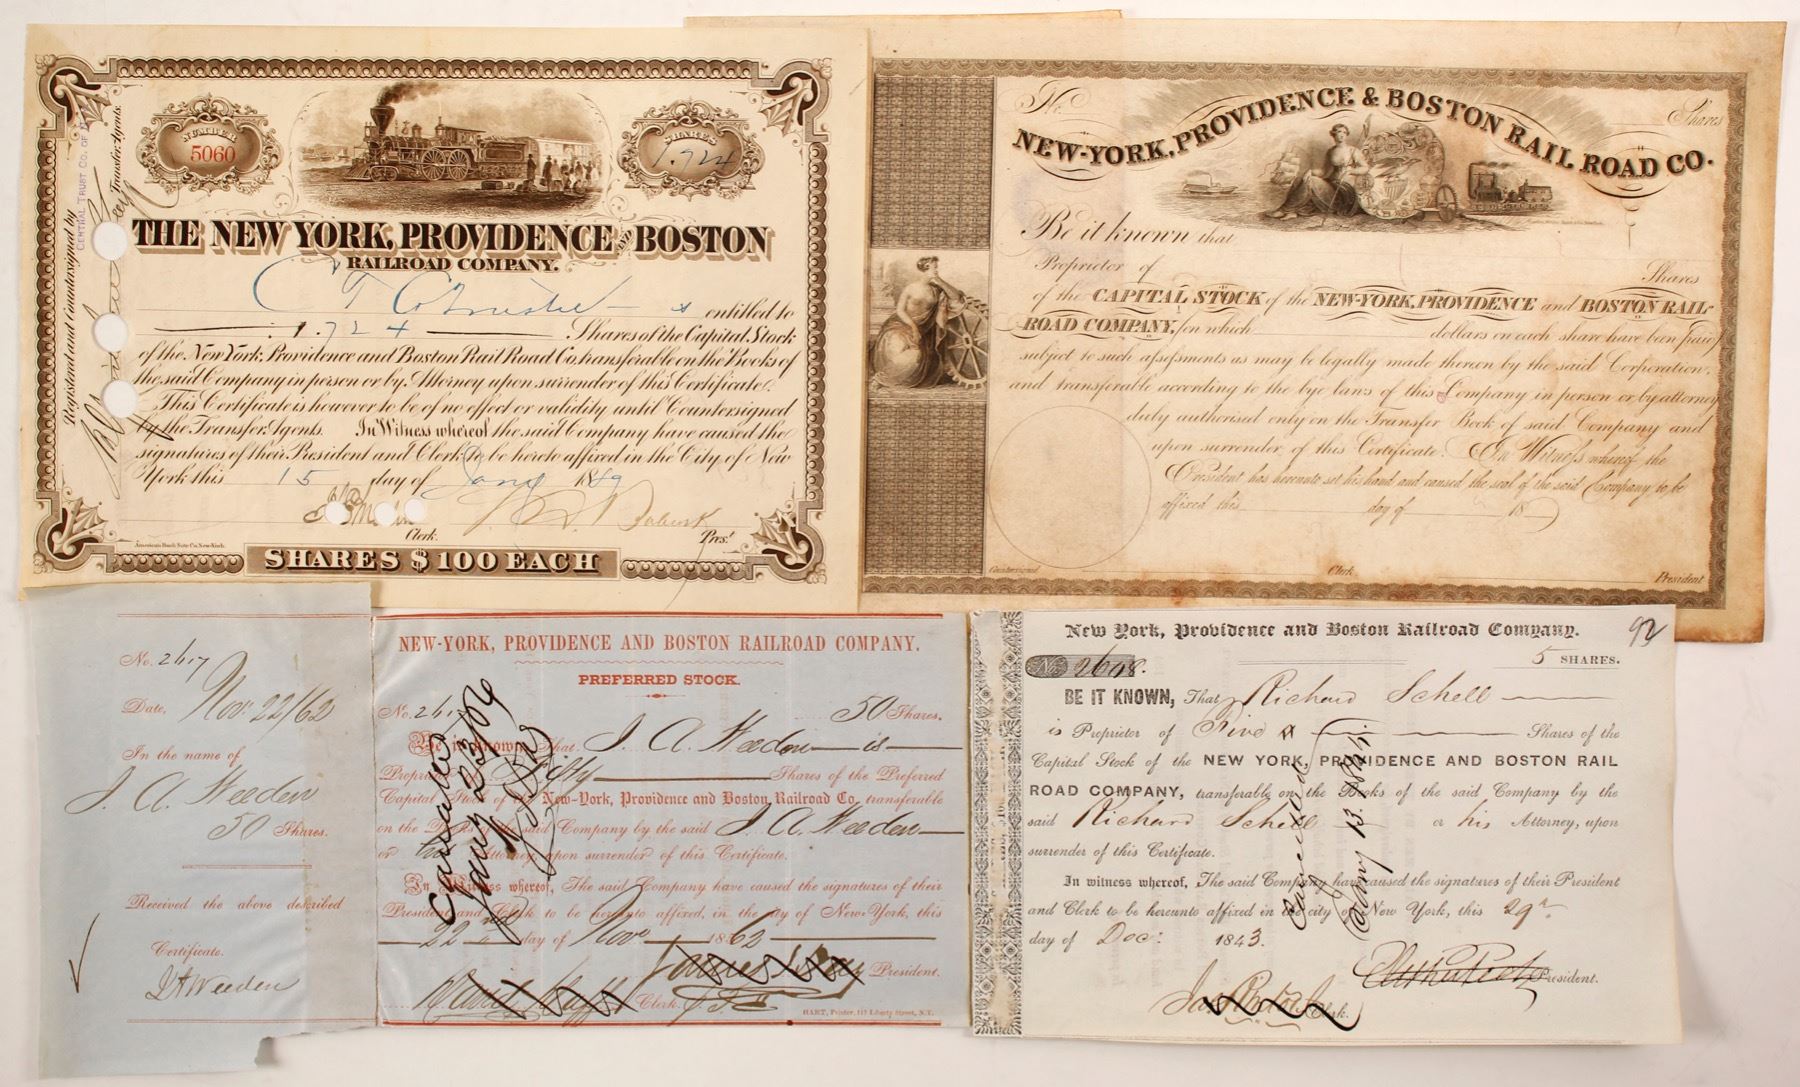 NUMBER
5060
SHARES
1.724
THE NEW YORK, PROVIDENCE AND BOSTON
RAILROAD COMPANY.
is entitled to
1.724 Shares of the Capital Stock
of the New York, Providence and Boston Rail Road Co. transferable on the Books of
the said Company in person or by Attorney upon surrender of this Certificate.
This Certificate is however to be of no effect or validity until Countersigned
by the Transfer Agents. In Witness whereof the said Company have caused the
signatures of their President and Clerk to be hereto affixed in the City of New
York this 15 day of Jany 1889
Clerk. Prest.
American Bank Note Co. New-York.
SHARES $100 EACH
Registered and Countersigned by
CENTRAL TRUST CO. OF
Transfer Agents.
No. Shares
NEW-YORK, PROVIDENCE & BOSTON RAIL ROAD CO.
Be it known that
Proprietor of Shares
of the CAPITAL STOCK of the NEW-YORK, PROVIDENCE and BOSTON RAIL-
ROAD COMPANY, for which dollars on each share have been paid
subject to such assessments as may be legally made thereon by the said Corporation,
and transferable according to the bye laws of this Company in person or by attorney
duly authorised only on the Transfer Book of said Company and
upon surrender of this Certificate. In Witness whereof the
President has hereunto set his hand and caused the seal of the said Company to be
affixed this day of 18
Countersigned Clerk President
No. 2617
Date, Nov. 22/62
In the name of
J. A. Weeden
50 Shares.
Received the above described
Certificate.
J A Weeden
NEW-YORK, PROVIDENCE AND BOSTON RAILROAD COMPANY.
PREFERRED STOCK.
No. 2617 50 Shares.
Be it known, That J. A. Weeden is
Proprietor of Fifty Shares of the Preferred
Capital Stock of the New-York, Providence and Boston Railroad Co. transferable
on the Books of the said Company by the said J. A. Weeden
or his Attorney, upon surrender of this Certificate.
In Witness whereof, The said Company have caused the signatures of their
President and Clerk to be hereunto affixed, in the city of New-York, this
22nd day of Nov 1862
President.
Clerk.
HART, Printer, 117 Liberty Street, N.Y.
Cancelled
New York, Providence and Boston Railroad Company.
92
No. 2608. 5 SHARES.
BE IT KNOWN, That Richard Schell
is Proprietor of Five Shares of the
Capital Stock of the NEW YORK, PROVIDENCE AND BOSTON RAIL
ROAD COMPANY, transferable on the Books of the said Company by the
said Richard Schell or his Attorney, upon
surrender of this Certificate.
In witness whereof, The said Company have caused the signatures of their President
and Clerk to be hereunto affixed in the city of New York, this 29th
day of Dec: 1843.
President.
Clerk.
Cancelled